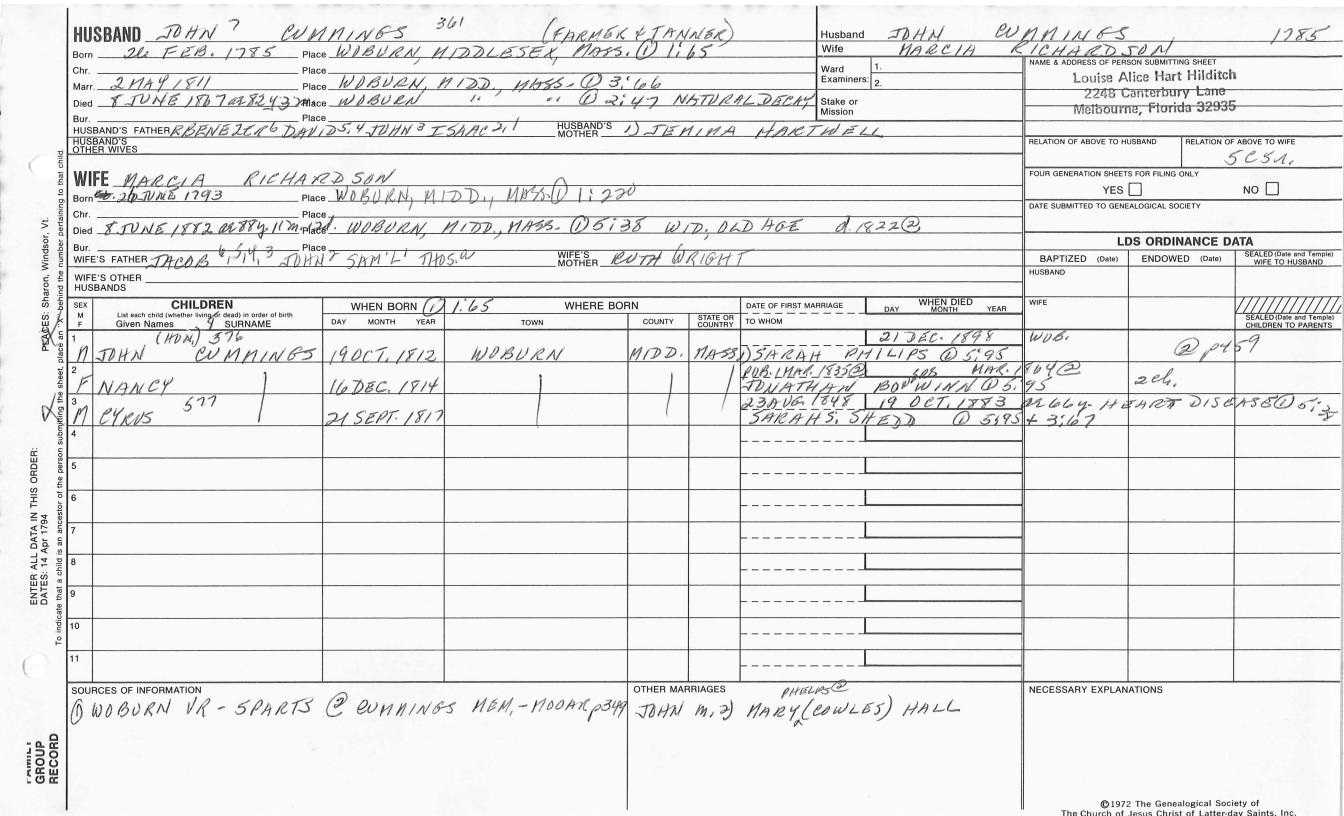 HUSBAND JOHN 7 CUMMINGS 361 (FARMER & TANNER)
Born 26 FEB. 1785 Place WOBURN, MIDDLESEX, MASS. ① 1:65
Chr. Place
Marr. 2 MAY 1811 Place WOBURN, MIDD., MASS. ① 3:66
Died 8 JUNE 1867 Place WOBURN " " ① 2:47 NATURAL DECAY
Bur. Place
HUSBAND'S FATHER EBENEZER 6 DAVID 5,4 JOHN 3 ISAAC 2,1 HUSBAND'S MOTHER 1) JEMIMA HARTWELL
HUSBAND'S OTHER WIVES
Husband JOHN CUMMINGS 1785
Wife MARCIA RICHARDSON
Ward Examiners: 1.
2.
Stake or Mission
NAME & ADDRESS OF PERSON SUBMITTING SHEET
Louise Alice Hart Hilditch
2248 Canterbury Lane
Melbourne, Florida 32935
RELATION OF ABOVE TO HUSBAND RELATION OF ABOVE TO WIFE
5C5r.
FOUR GENERATION SHEETS FOR FILING ONLY
YES NO
DATE SUBMITTED TO GENEALOGICAL SOCIETY
WIFE MARCIA RICHARDSON
Born 26 JUNE 1793 Place WOBURN, MIDD., MASS. ① 1:220
Chr. Place
Died 8 JUNE 1882 Place WOBURN, MIDD, MASS. ① 5:38 WID, OLD AGE d. 1822 ②
Bur. Place
WIFE'S FATHER JACOB 6,5,4,3 JOHN SAM'L THOS. WIFE'S MOTHER RUTH WRIGHT
WIFE'S OTHER HUSBANDS
LDS ORDINANCE DATA
BAPTIZED (Date) ENDOWED (Date) SEALED (Date and Temple) WIFE TO HUSBAND
HUSBAND
WIFE
SEALED (Date and Temple) CHILDREN TO PARENTS
SEX M F CHILDREN List each child (whether living or dead) in order of birth Given Names SURNAME
WHEN BORN ① 1:65 WHERE BORN
DAY MONTH YEAR TOWN COUNTY STATE OR COUNTRY
DATE OF FIRST MARRIAGE TO WHOM
WHEN DIED DAY MONTH YEAR
1 (HON.) 576 21 DEC. 1898 WOB.
M JOHN CUMMINGS 19 OCT. 1812 WOBURN MIDD. MASS 1) SARAH PHILIPS ① 5:95 ② p459
2 PUB. 1 MAR. 1835 ② MAR. 1864 ②
F NANCY 16 DEC. 1814 JONATHAN BOWWINN ① 5:95 2 ch.
3 577 23 AUG. 1848 19 OCT. 1883 ae 66y- HEART DISEASE ① 5:
M CYRUS 21 SEPT. 1817 SARAH S. SHEDD ① 5:95 + 3:67
4
5
6
7
8
9
10
11
SOURCES OF INFORMATION
① WOBURN VR - 5 PARTS ② CUMMINGS MEM. - MOOAR p349
OTHER MARRIAGES
PHELPS ②
JOHN m. 2) MARY (COWLES) HALL
NECESSARY EXPLANATIONS
©1972 The Genealogical Society of
The Church of Jesus Christ of Latter-day Saints, Inc.
PLACES: Sharon, Windsor, Vt.
To indicate that a child is an ancestor of the person submitting the sheet, place an "X" behind the number pertaining to that child.
ENTER ALL DATA IN THIS ORDER:
DATES: 14 Apr 1794
FAMILY GROUP RECORD